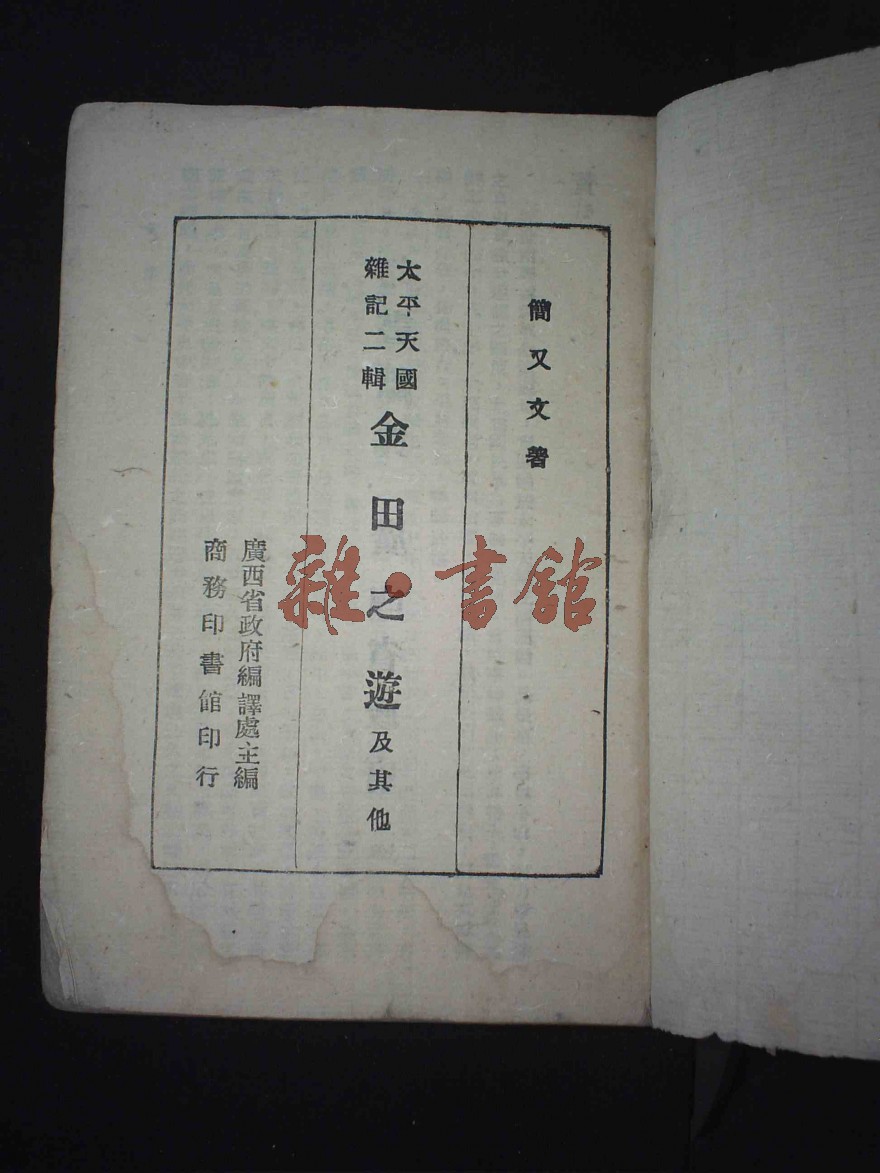 簡又文著
太平天國
雜記二輯
金田之遊及其他
廣西省政府編譯處主編
商務印書館印行
雜·書館